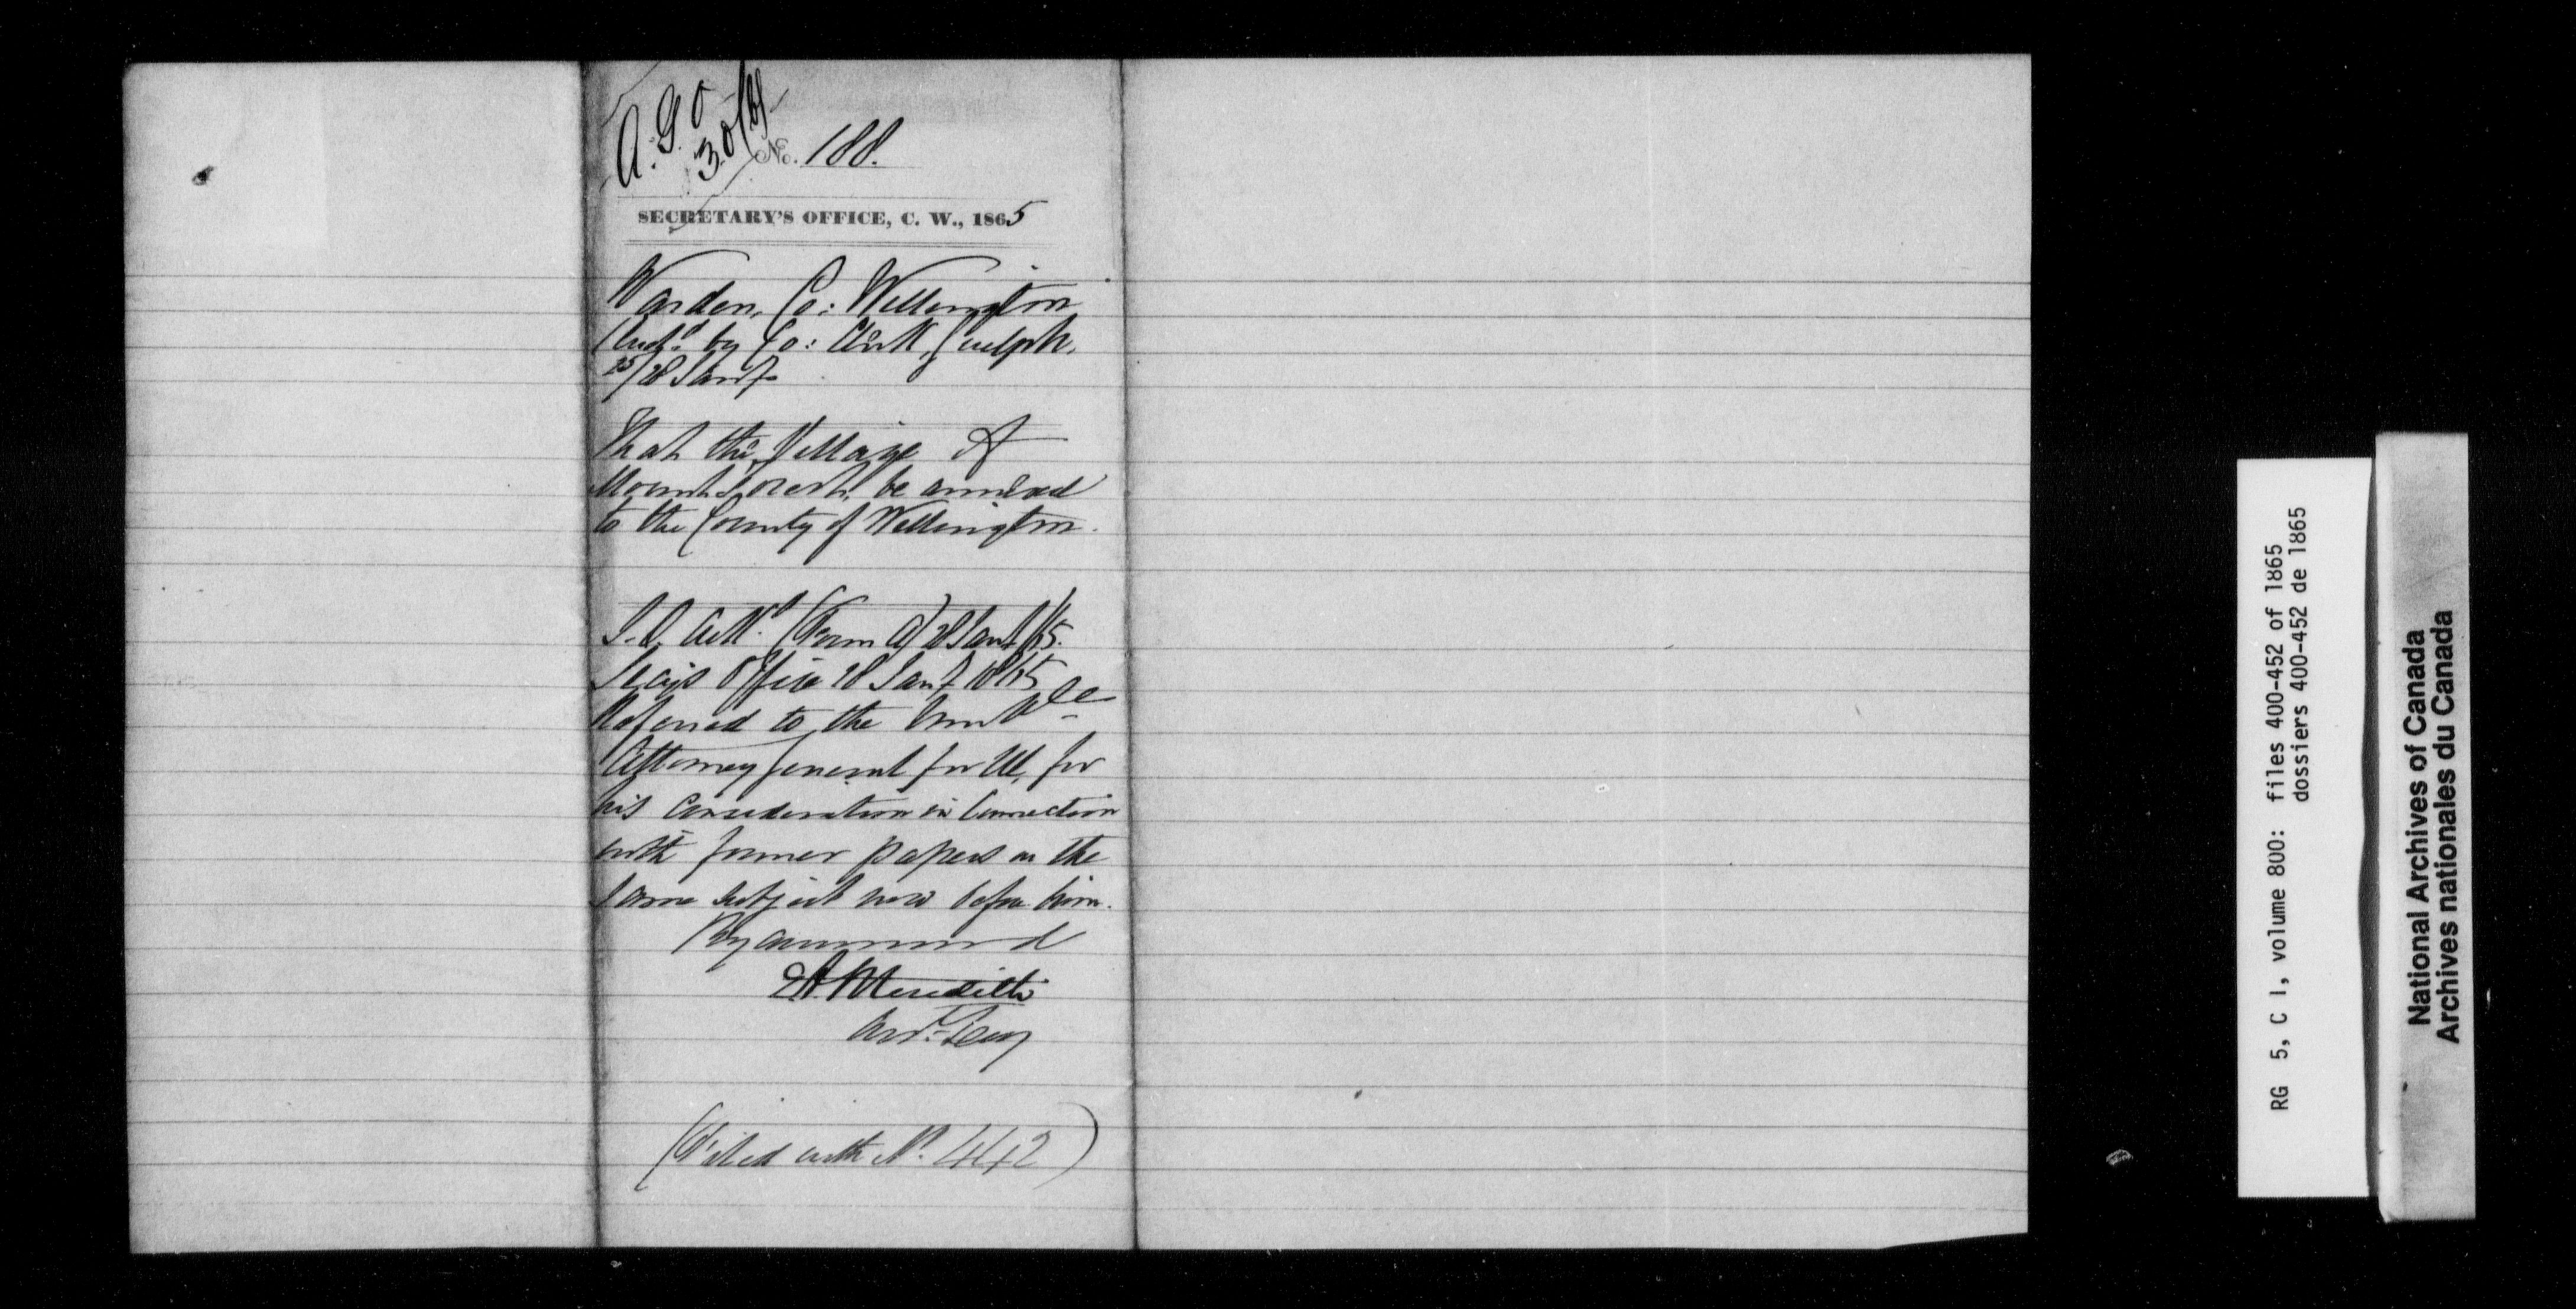 A.G.O
30/65
No. 188.
SECRETARY'S OFFICE, C. W., 1865
Warden, Co: Wellington
by Co: Clerk, Guelph,
25/28 Jany
That the Village of
Mount Forest, be annexed
to the County of Wellington.
Ackd. (Form A) 28 Jany/65.
Secy's Office 28 Jany 1865
Referred to the Honble
Attorney General for UC, for
his Consideration in Connection
with former papers on the
same subject now before him.
By command
EA Meredith
Asst. Secy
(Filed with No. 442)
RG 5, C 1, volume 800: files 400-452 of 1865
dossiers 400-452 de 1865
National Archives of Canada
Archives nationales du Canada